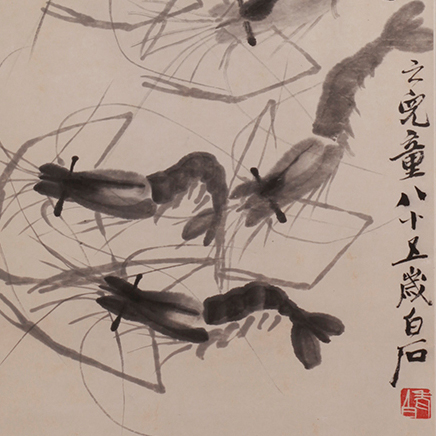 之兒童八十五歲白石